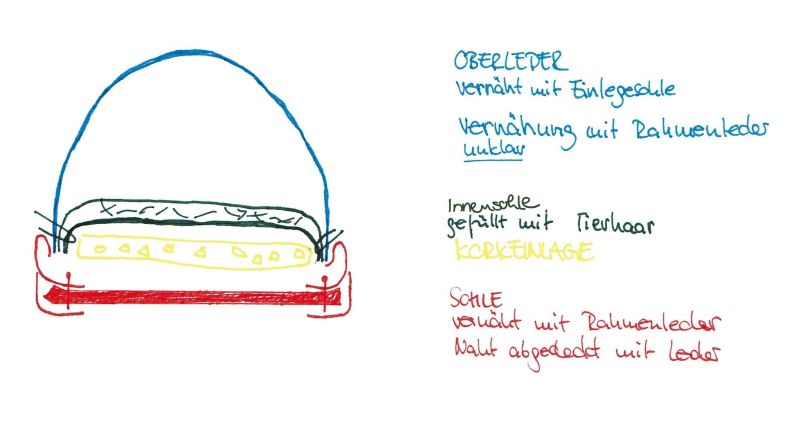 OBERLEDER
vernäht mit Einlegesohle
Vernähung mit Rahmenleder
unklar
Innensohle
gefüllt mit Tierhaar
KORKEINLAGE
SOHLE
vernäht mit Rahmenleder
Naht abgedeckt mit Leder